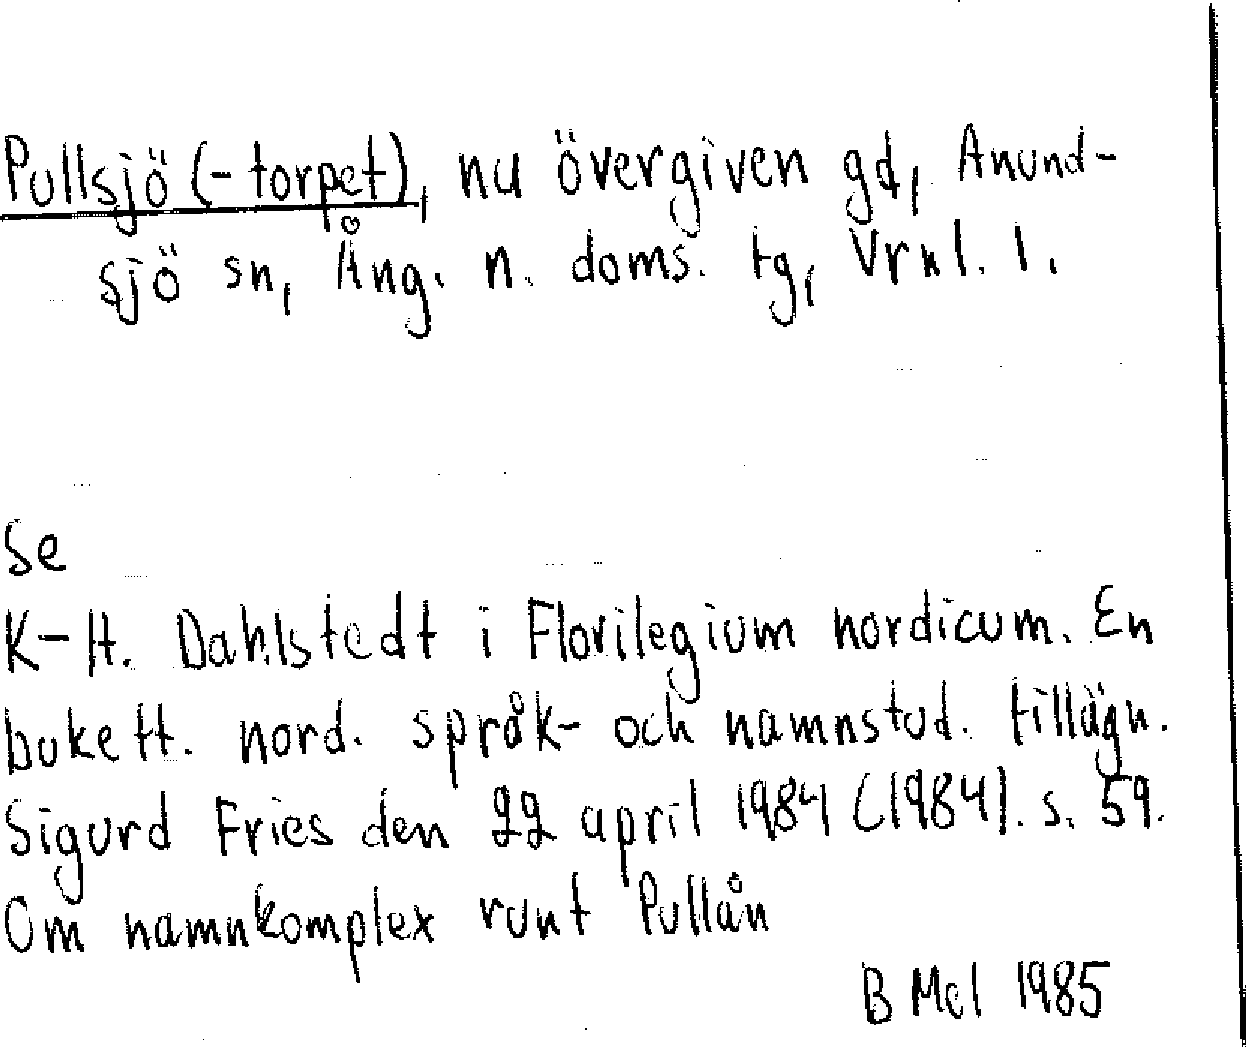 Pullsjö (-torpet), nu övergiven gd, Anund-
sjö sn, Ång. n. doms. tg, Vrnl. l.
Se
K-H. Dahlstedt i Florilegium nordicum. En
bukett. nord. språk- och namnstud. tillägn.
Sigurd Fries den 22 april 1984 (1984). s. 59.
Om namnkomplex runt Pullån
B Mel 1985